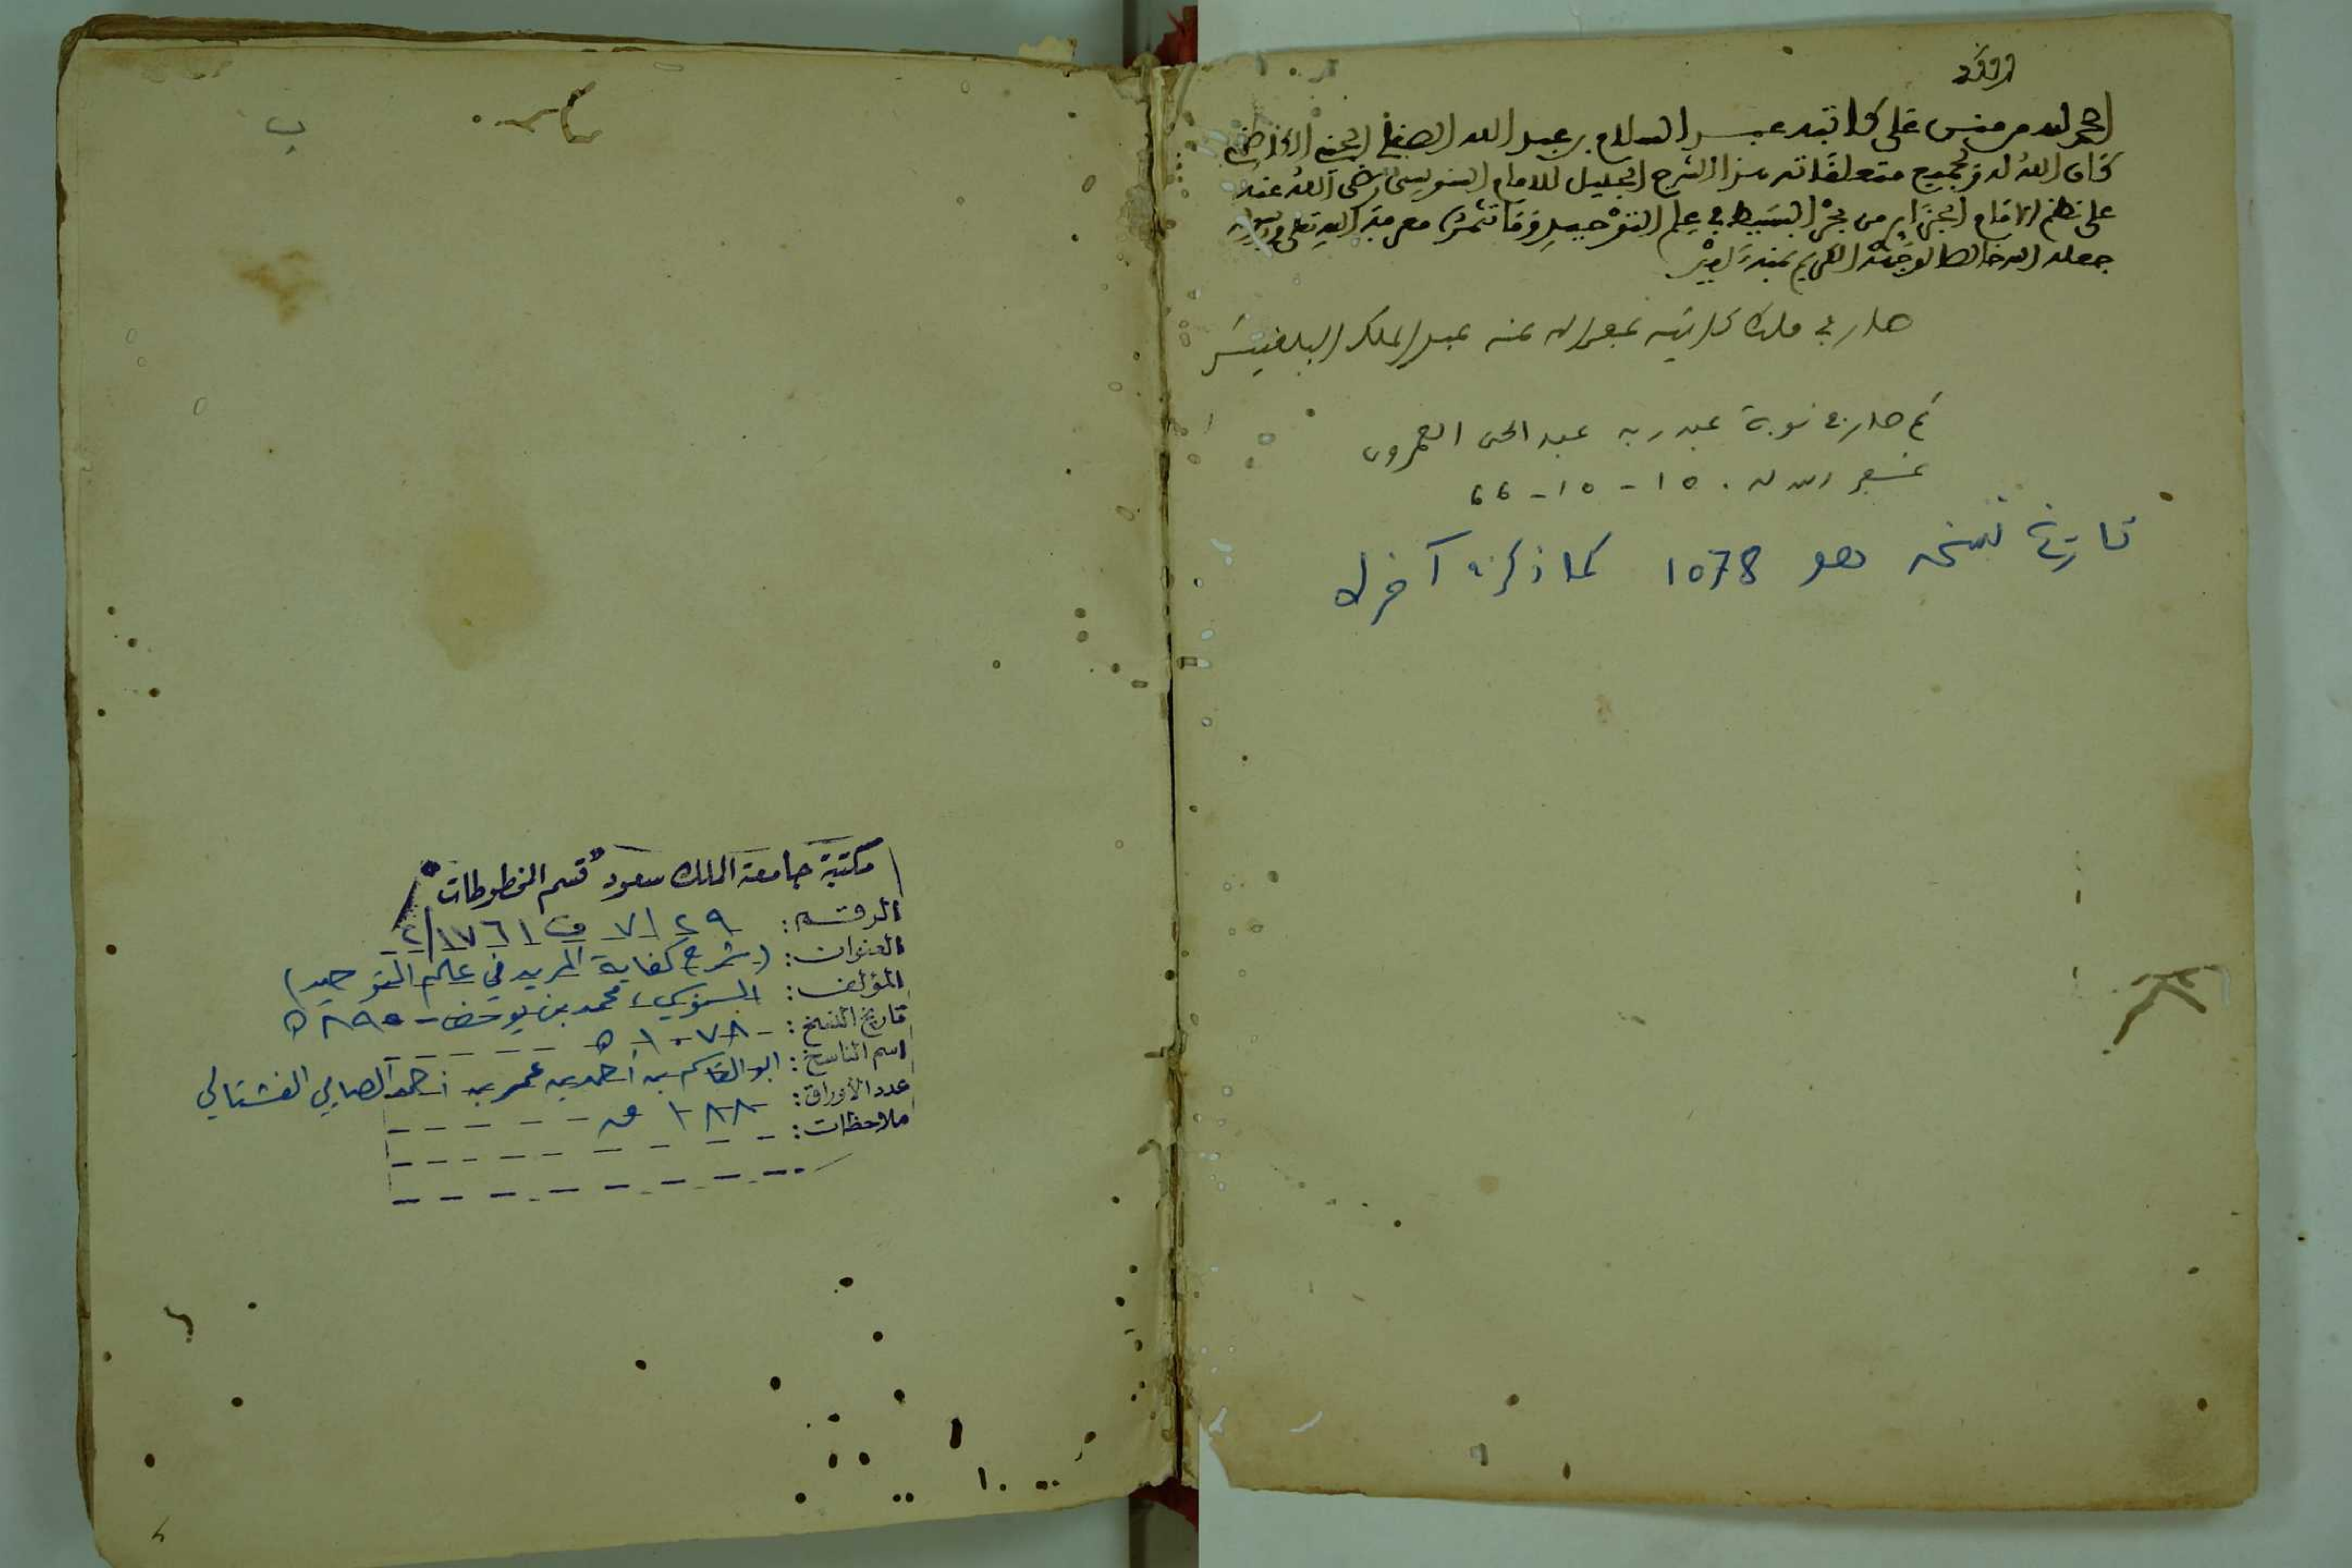 الحمد لله من من على كاتبه عبد السلام بن عبد الله
كان الله له بجميع متعلقاته هذا الشرح الجليل للامام السنوسي رضي الله عنه
على نظم الامام الجزايري من بحر البسيط في علم التوحيد معرفة الله تعلى
جعله الله خالصا لوجهه الكريم بمنه
صار في ملك كاتبه عبد الملك البلغيثي
ثم صار في نوبة عبد ربه عبد الحي العمروي
غفر الله له . 15 - 10 - 66
تاريخ نسخه هو 1078 كما ذكر آخره
ب
مكتبة جامعة الملك سعود "قسم المخطوطات"
الرقم: ٧١٢٩ ف ١٧٦١/٢
العنوان: (شرح كفاية المريد في علم التوحيد)
المؤلف: السنوسي، محمد بن يوسف - ٨٩٥ ه
تاريخ النسخ: ١٠٧٨ ه
اسم الناسخ: ابو القاسم بن أحمد بن عمر بن أحمد الفشتالي
عدد الأوراق: ١٨٨ ق
ملاحظات: